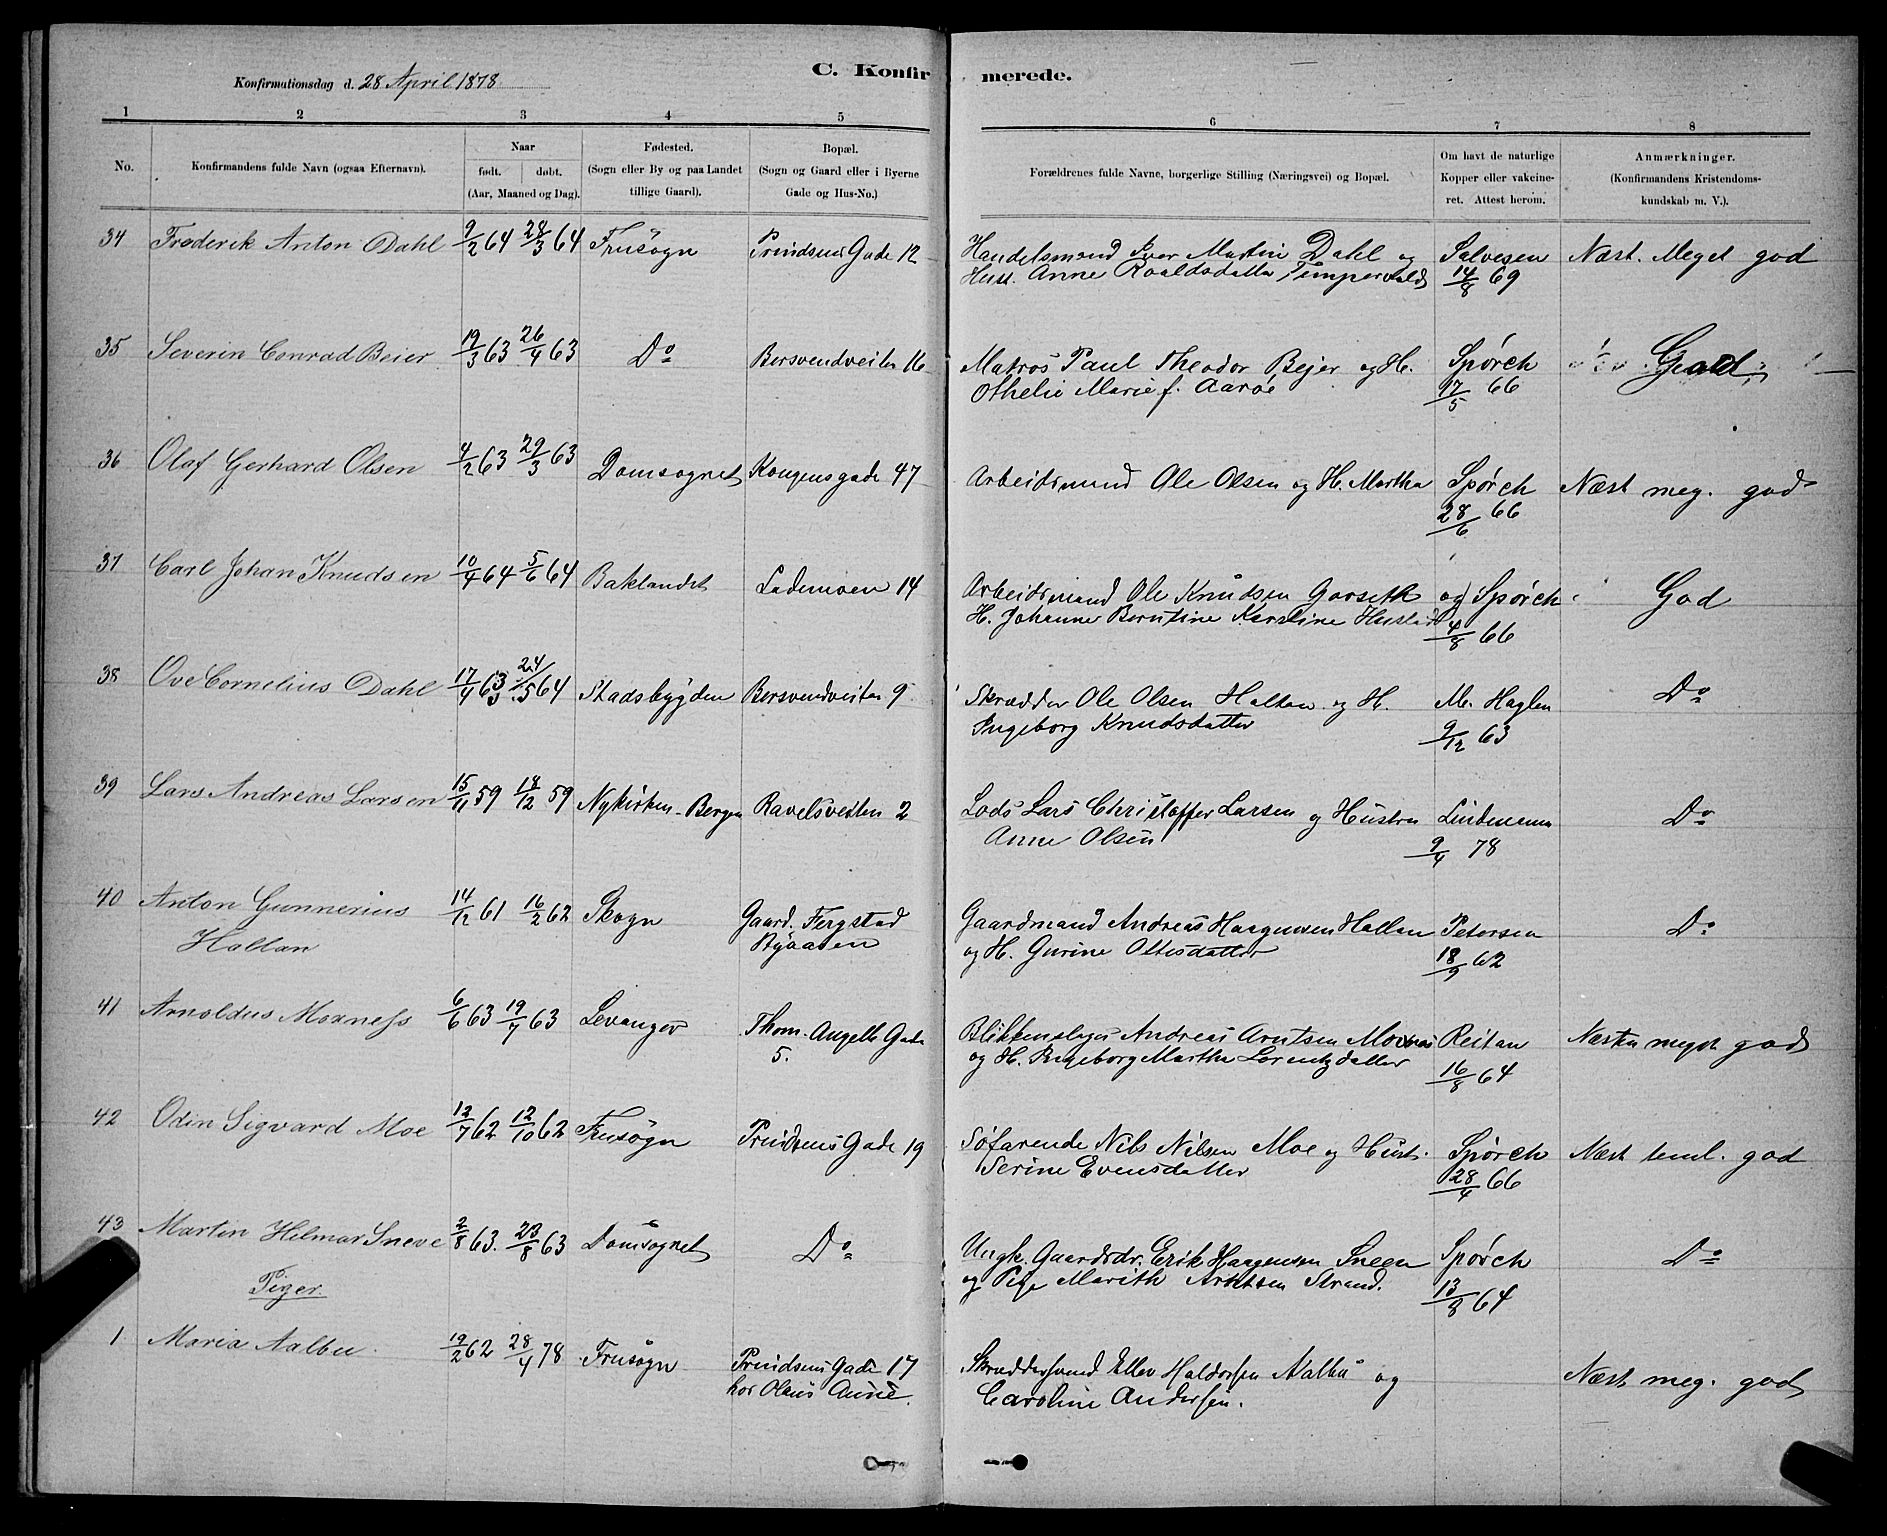 C. Konfirmerede.
Konfirmationsdag d. 28 April 1878
1 2 3 4 5 6 7 8
No.
Konfirmandens fulde Navn (ogsaa Efternavn).
Naar
født. døbt.
(Aar, Maaned og Dag).
Fødested.
(Sogn eller By og paa Landet
tillige Gaard).
Bopæl.
(Sogn og Gaard eller i Byerne
Gade og Hus-No.)
Forældrenes fulde Navne, borgerlige Stilling (Næringsvei) og Bopæl.
Om havt de naturlige
Kopper eller vakcine-
ret. Attest herom.
Anmærkninger.
(Konfirmandens Kristendoms-
kundskab m. V.).
34 Frederik Anton Dahl 9/2 64 28/3 64 Frusogn Prindsens Gade 12 Handelsmand Iver Martin Dahl og Salvesen Næst. Meget god
Hust. Anne Roaldsdatter 14/8 69
35 Severin Conrad Beier 19/3 63 26/4 63 Do Bersvendveiten 16 Matros Paul Theodor Bejer og H. Spørch God
Othelie Marie f. Aarøe 17/5 66
36 Olaf Gerhard Olsen 4/2 63 29/3 63 Domsognet Kongensgade 47 Arbeidsmand Ole Olsen og H. Martha Spørch Næst meg. god
28/6 66
37 Carl Johan Knudsen 10/4 64 5/6 64 Baklandet Lademoen 14 Arbeidsmand Ole Knudsen Garseth og Spørch God
H. Johanne Berntine Kerstine 4/8 66
38 Ove Cornelius Dahl 17/4 63 24/5 64 Stadsbygden Bersvendveiten 9 Skrædder Ole Olsen Haltan og H. M. Haglen Do
Ingeborg Knudsdatter 9/12 63
39 Lars Andreas Larsen 15/11 59 18/12 59 Nykirken - Bergen Ravelsveiten 2 Lods Lars Christoffer Larsen og Hustru Lindemann Do
Anne Olsen 9/4 78
40 Anton Gunnerius 14/12 61 16/2 62 Skogn Gaard. Fergstad Gaardmand Andreas Haagensen Hallan Petersen Do
Haltan Byaasen og H. Gurine Ottesdatter 18/9 62
41 Arnoldus Moxness 6/6 63 19/7 63 Levanger Thom. Angells Gade Blikkenslager Andreas Arntsen Moxnes Reitan Næsten meget god
5. og H. Ingeborg Martha Lorentzdatter 16/8 64
42 Odin Sigvard Moe 12/7 62 12/10 62 Frusogn Prindsens Gade 19 Søfarende Nils Nilsen Moe og Hust. Spørch Næst teml. god
Serine Evensdatter 28/4 66
43 Martin Hilmar Sneve 2/8 63. 23/8 63 Domsognet Do Ungk. Gaardsdr. Erik Haagensen Sneen Spørch Do
og Pige Marith Arntsen Strand. 13/8 64
Piger.
1 Maria Aalbu. 19/2 62 28/4 78 Frusogn Prindsens Gade 17 Skræddersvend Ellev Haldorsen Aalbu og Næst meg. god
hos Olaus Aune. Caroline Andersen.